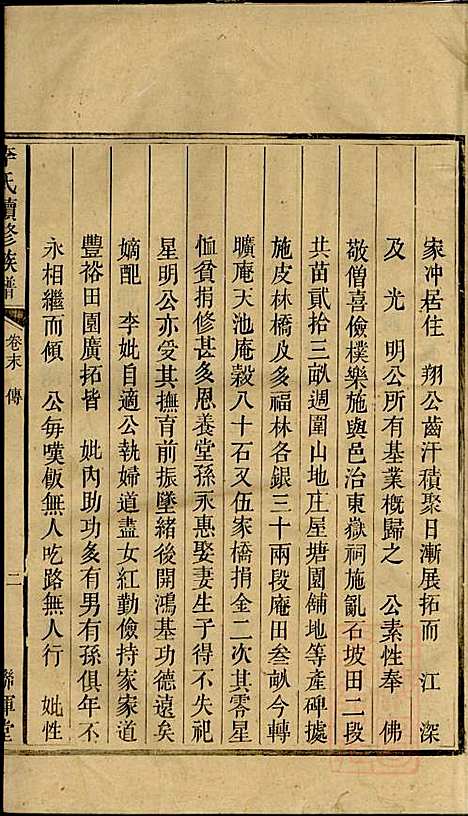 家冲居住　翔公齒汗積聚日漸展拓而　江　深
及　光　明公所有基業概歸之　公素性奉　佛
敬僧喜儉樸樂施與邑治東嶽祠施亂石坡田二段
共苗貳拾三畝週圍山地庄屋塘園鋪地等產碑據
施皮林橋及多福林各銀三十兩段庵田叁畝今轉
曠庵天池庵穀八十石又伍家橋捐金二次其零星
恤貧捐修甚多恩養堂孫永惠娶妻生子得不失祀
星明公亦受其撫育前振墜緒後開鴻基功德遠矣
嫡配　李妣自適公執婦道盡女紅勤儉持家家道
豐裕田園廣拓皆　妣內助功多有男有孫俱年不
永相繼而傾　公每嘆飯無人吃路無人行　妣性
李氏續修族譜　卷末　傳　二　聯軍堂